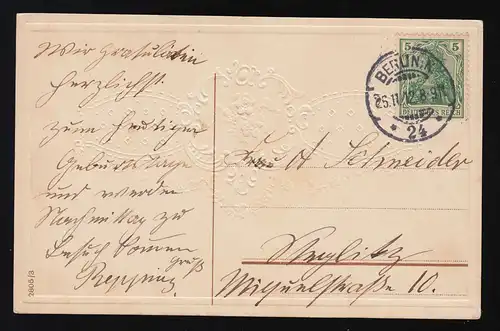 Wir gratulieren
herzlichst
zum heutigen
Geburtstage
und werden
Nachmittag zu
Besuch kommen
Gruß
Repping
2605/3
5 5
DEUTSCHES REICH
BERLIN N.
26.11.12.8-9N.
* 24
Frau A Schneider
Steglitz
Miquelstraße 10.